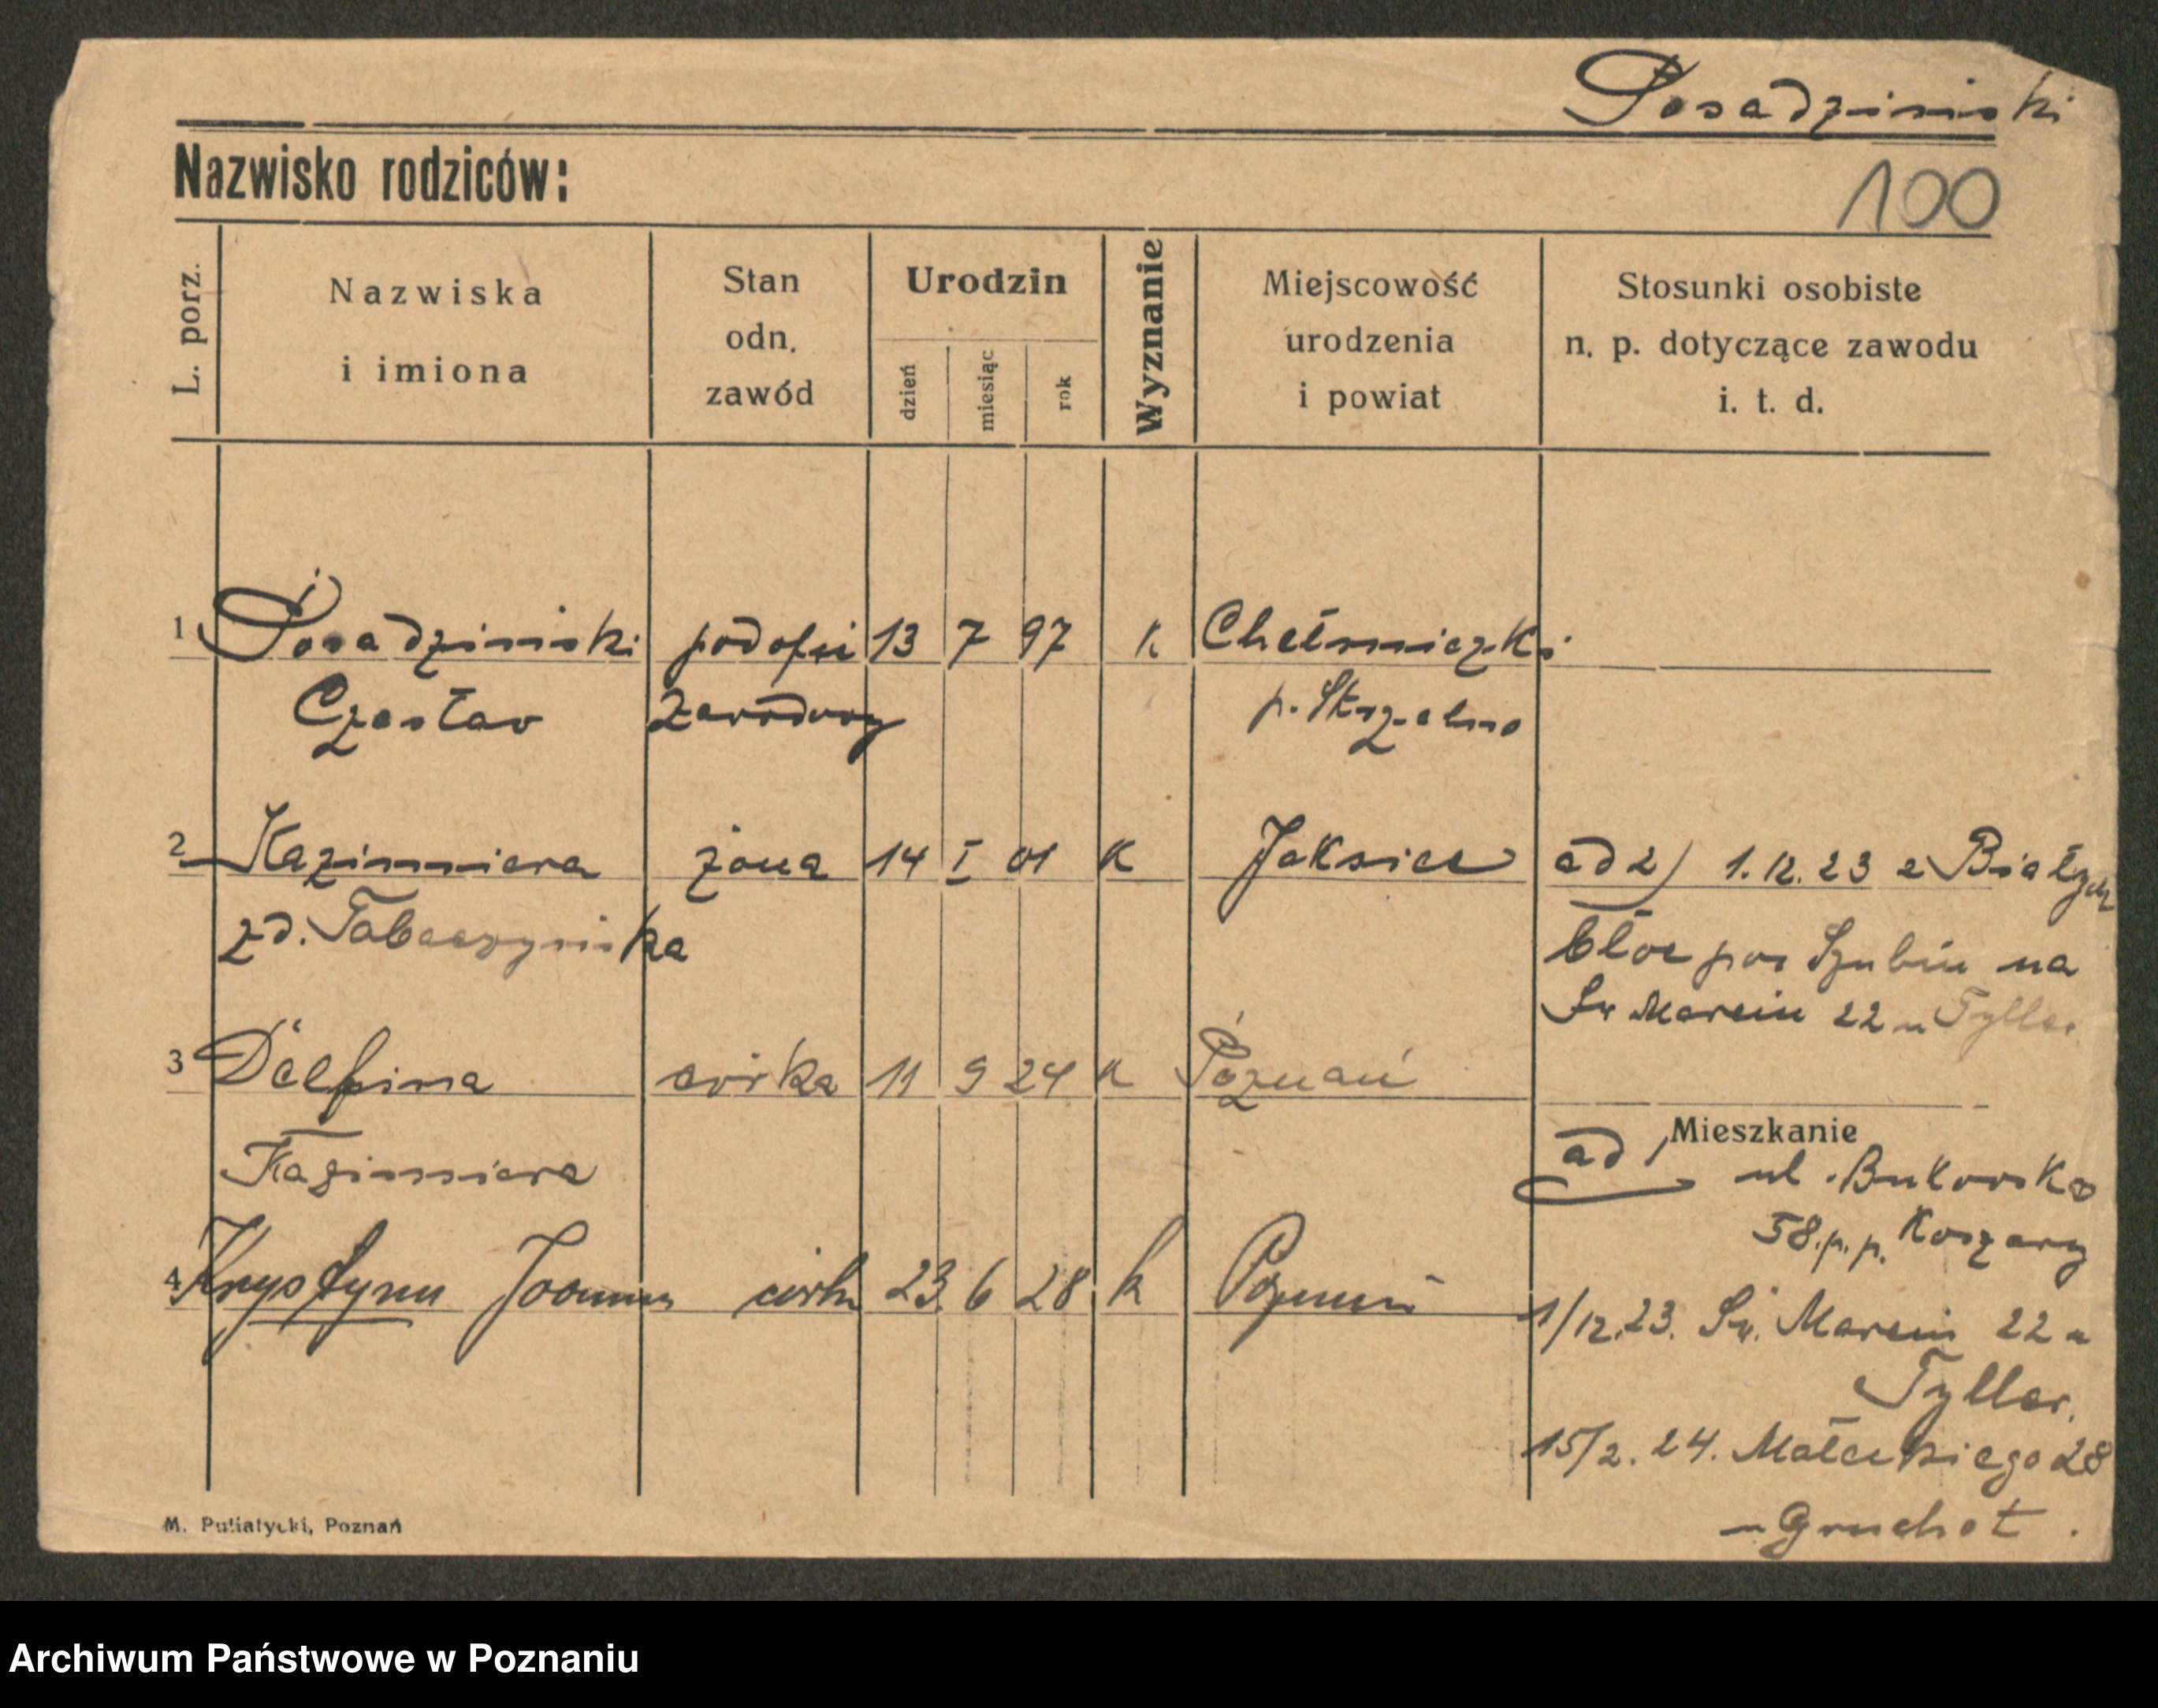 Posadziński
Nazwisko rodziców:
100
L. porz.
Nazwiska
i imiona
Stan
odn.
zawód
Urodzin
dzień
miesiąc
rok
Wyznanie
Miejscowość
urodzenia
i powiat
Stosunki osobiste
n. p. dotyczące zawodu
i. t. d.
1 Posadziński podofic 13 7 97 k Chełmiczki
Czesław zawodowy p. Strzelno
2 Kazimiera żona 14 I 01 K Jaksice ad 2) 1.12.23 z Białych
zd. Tabaczyńska
błot pow Szubin na
Św Marcin 22 u Tyller
3 Delfina córka 11 9 24 K Poznań
Kazimiera
Mieszkanie
ad 1 ul. Bukowska
58.p.p. Koszary
4 Krystyna Joanna córka 23. 6 28 k Poznań
1/12.23. Św. Marcin 22 u
Tyller.
15/2. 24. Małeckiego 28
u Gruchot.
M. Putiatycki, Poznań
Archiwum Państwowe w Poznaniu